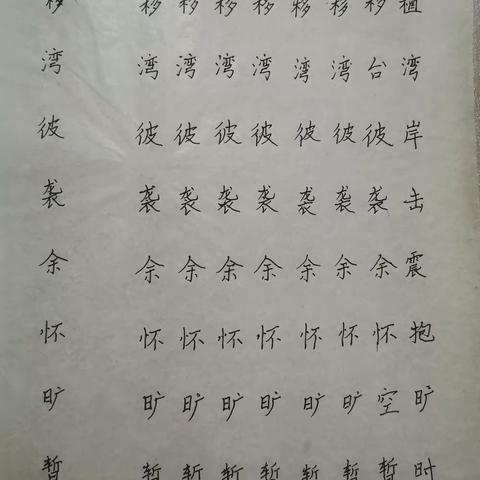 移 移 移 移 移 移 移 移 植
湾 湾 湾 湾 湾 湾 湾 台 湾
彼 彼 彼 彼 彼 彼 彼 彼 岸
袭 袭 袭 袭 袭 袭 袭 袭 击
余 余 余 余 余 余 余 余 震
怀 怀 怀 怀 怀 怀 怀 怀 抱
旷 旷 旷 旷 旷 旷 旷 空 旷
暂 暂 暂 暂 暂 暂 暂 暂 时